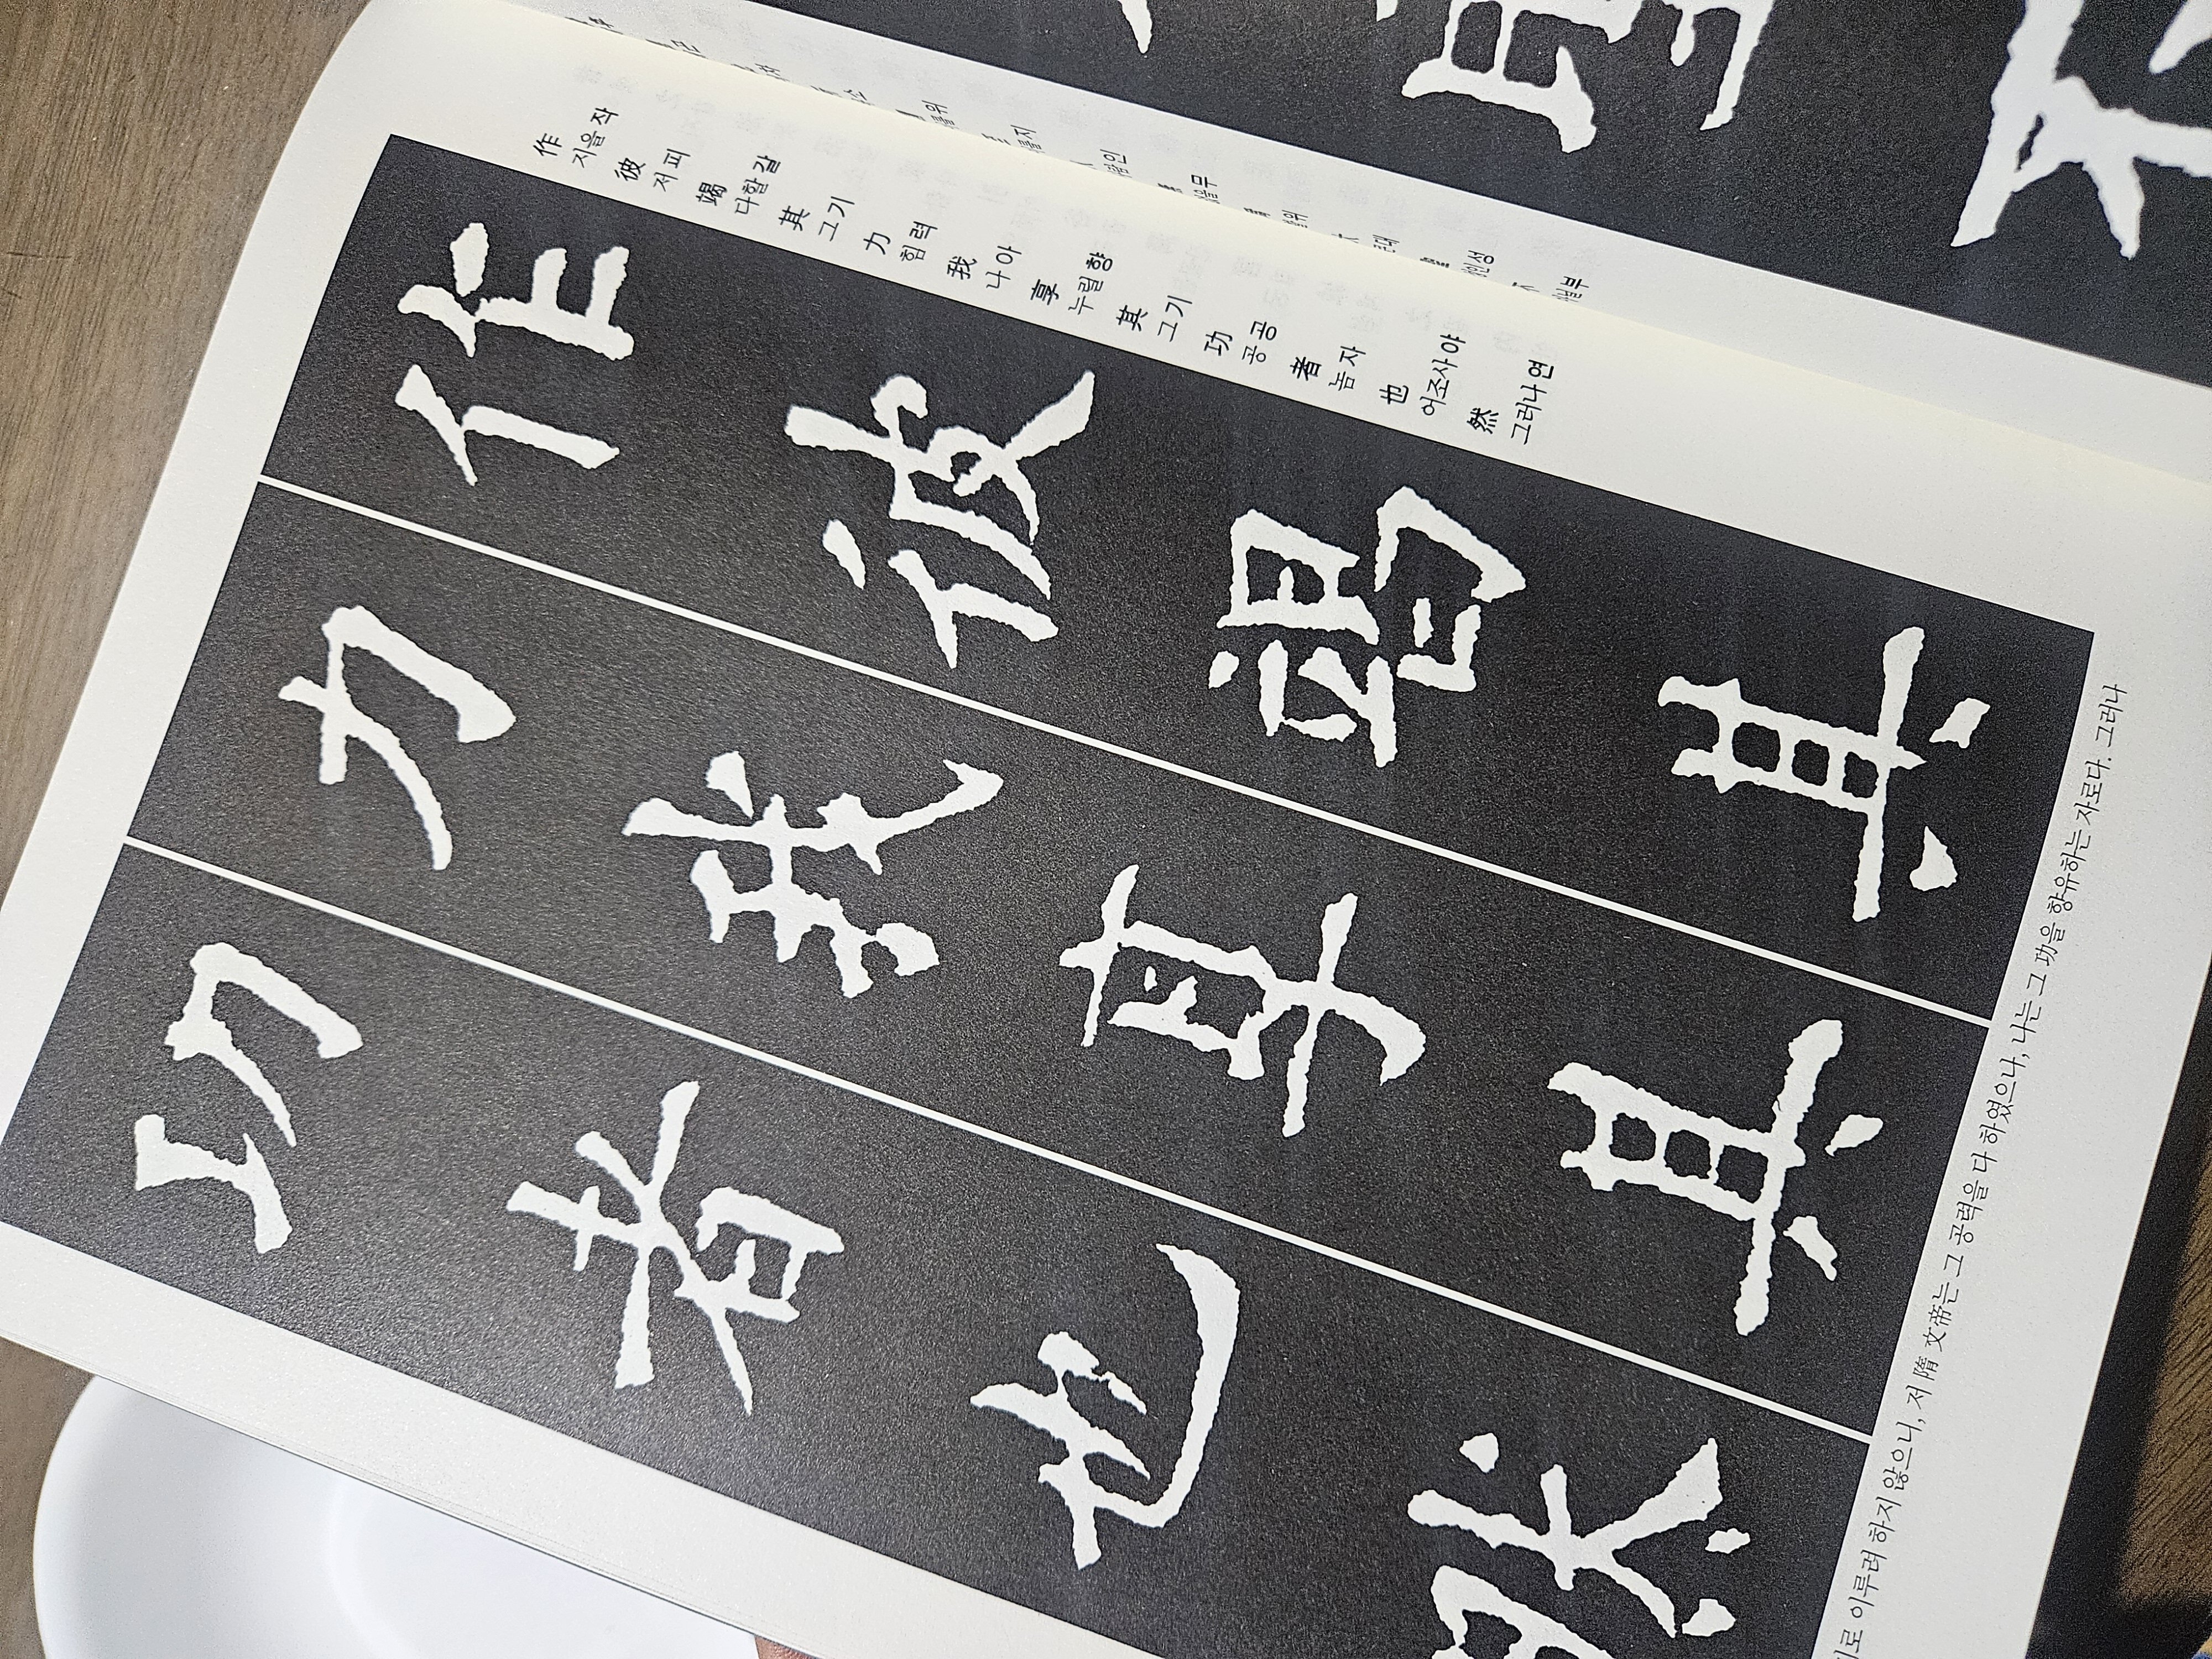 作彼竭其
力我享其
功者也然
作 지을작
彼 저피
竭 다할갈
其 그기
力 힘력
我 나아
享 누릴향
其 그기
功 공공
者 놈자
也 어조사야
然 그러나연
로 이루려 하지 않으니, 저 隋 文帝는 그 공력을 다 하였으나, 나는 그 功을 향유하는 자로다. 그러나